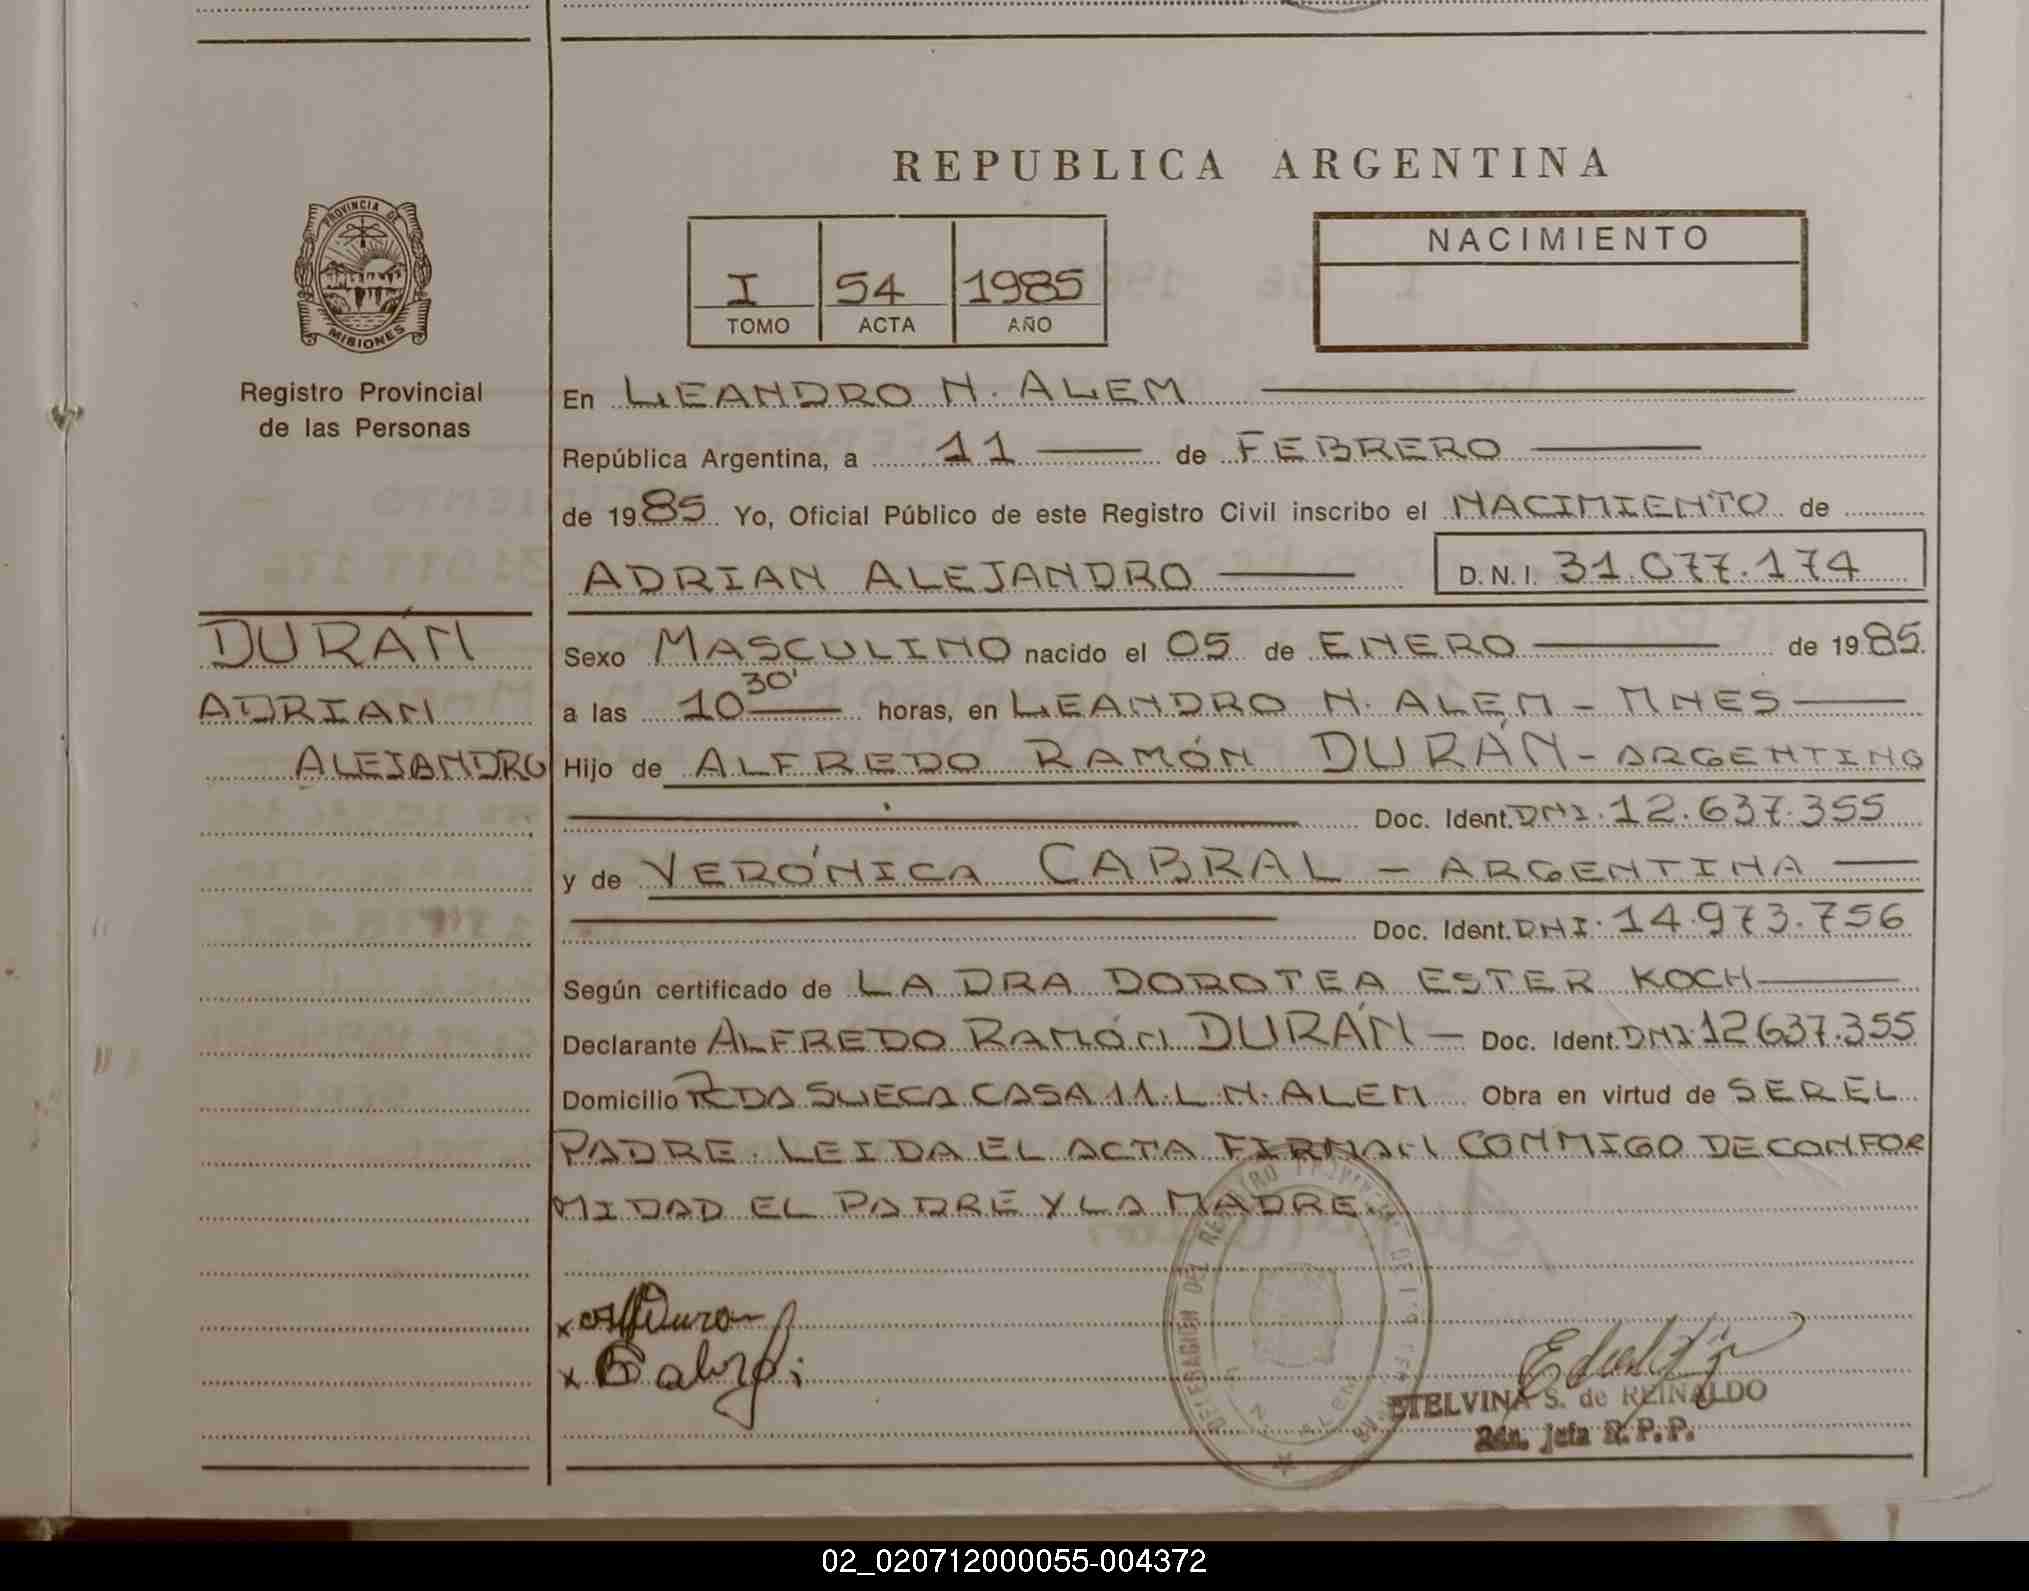 REPUBLICA ARGENTINA
PROVINCIA DE
MISIONES
Registro Provincial
de las Personas
I 54 1985
TOMO ACTA AÑO
NACIMIENTO
En LEANDRO N. ALEM
República Argentina, a 11 de FEBRERO
de 1985 Yo, Oficial Público de este Registro Civil inscribo el NACIMIENTO de
ADRIAN ALEJANDRO D.N.I. 31.077.174
DURÁN
ADRIAN
ALEJANDRO
Sexo MASCULINO nacido el 05 de ENERO de 1985.
a las 10 30' horas, en LEANDRO N. ALEM - MNES
Hijo de ALFREDO RAMÓN DURÁN - ARGENTINO
Doc. Ident. DNI. 12.637.355
y de VERÓNICA CABRAL - ARGENTINA
Doc. Ident. DNI. 14.973.756
Según certificado de LA DRA DOROTEA ESTER KOCH
Declarante ALFREDO RAMÓN DURÁN - Doc. Ident. DNI. 12637.355
Domicilio RDA SUECA CASA 11. L. N. ALEM Obra en virtud de SER EL
PADRE. LEIDA EL ACTA FIRMAN CONMIGO DE CONFOR
MIDAD EL PADRE Y LA MADRE.
DELEGACION DEL REGISTRO PROVINCIAL DE LAS
N. ALEM
x Duran
x Cabral
ETELVINA S. de REINALDO
2da. Jefa R.P.P.
02_020712000055-004372